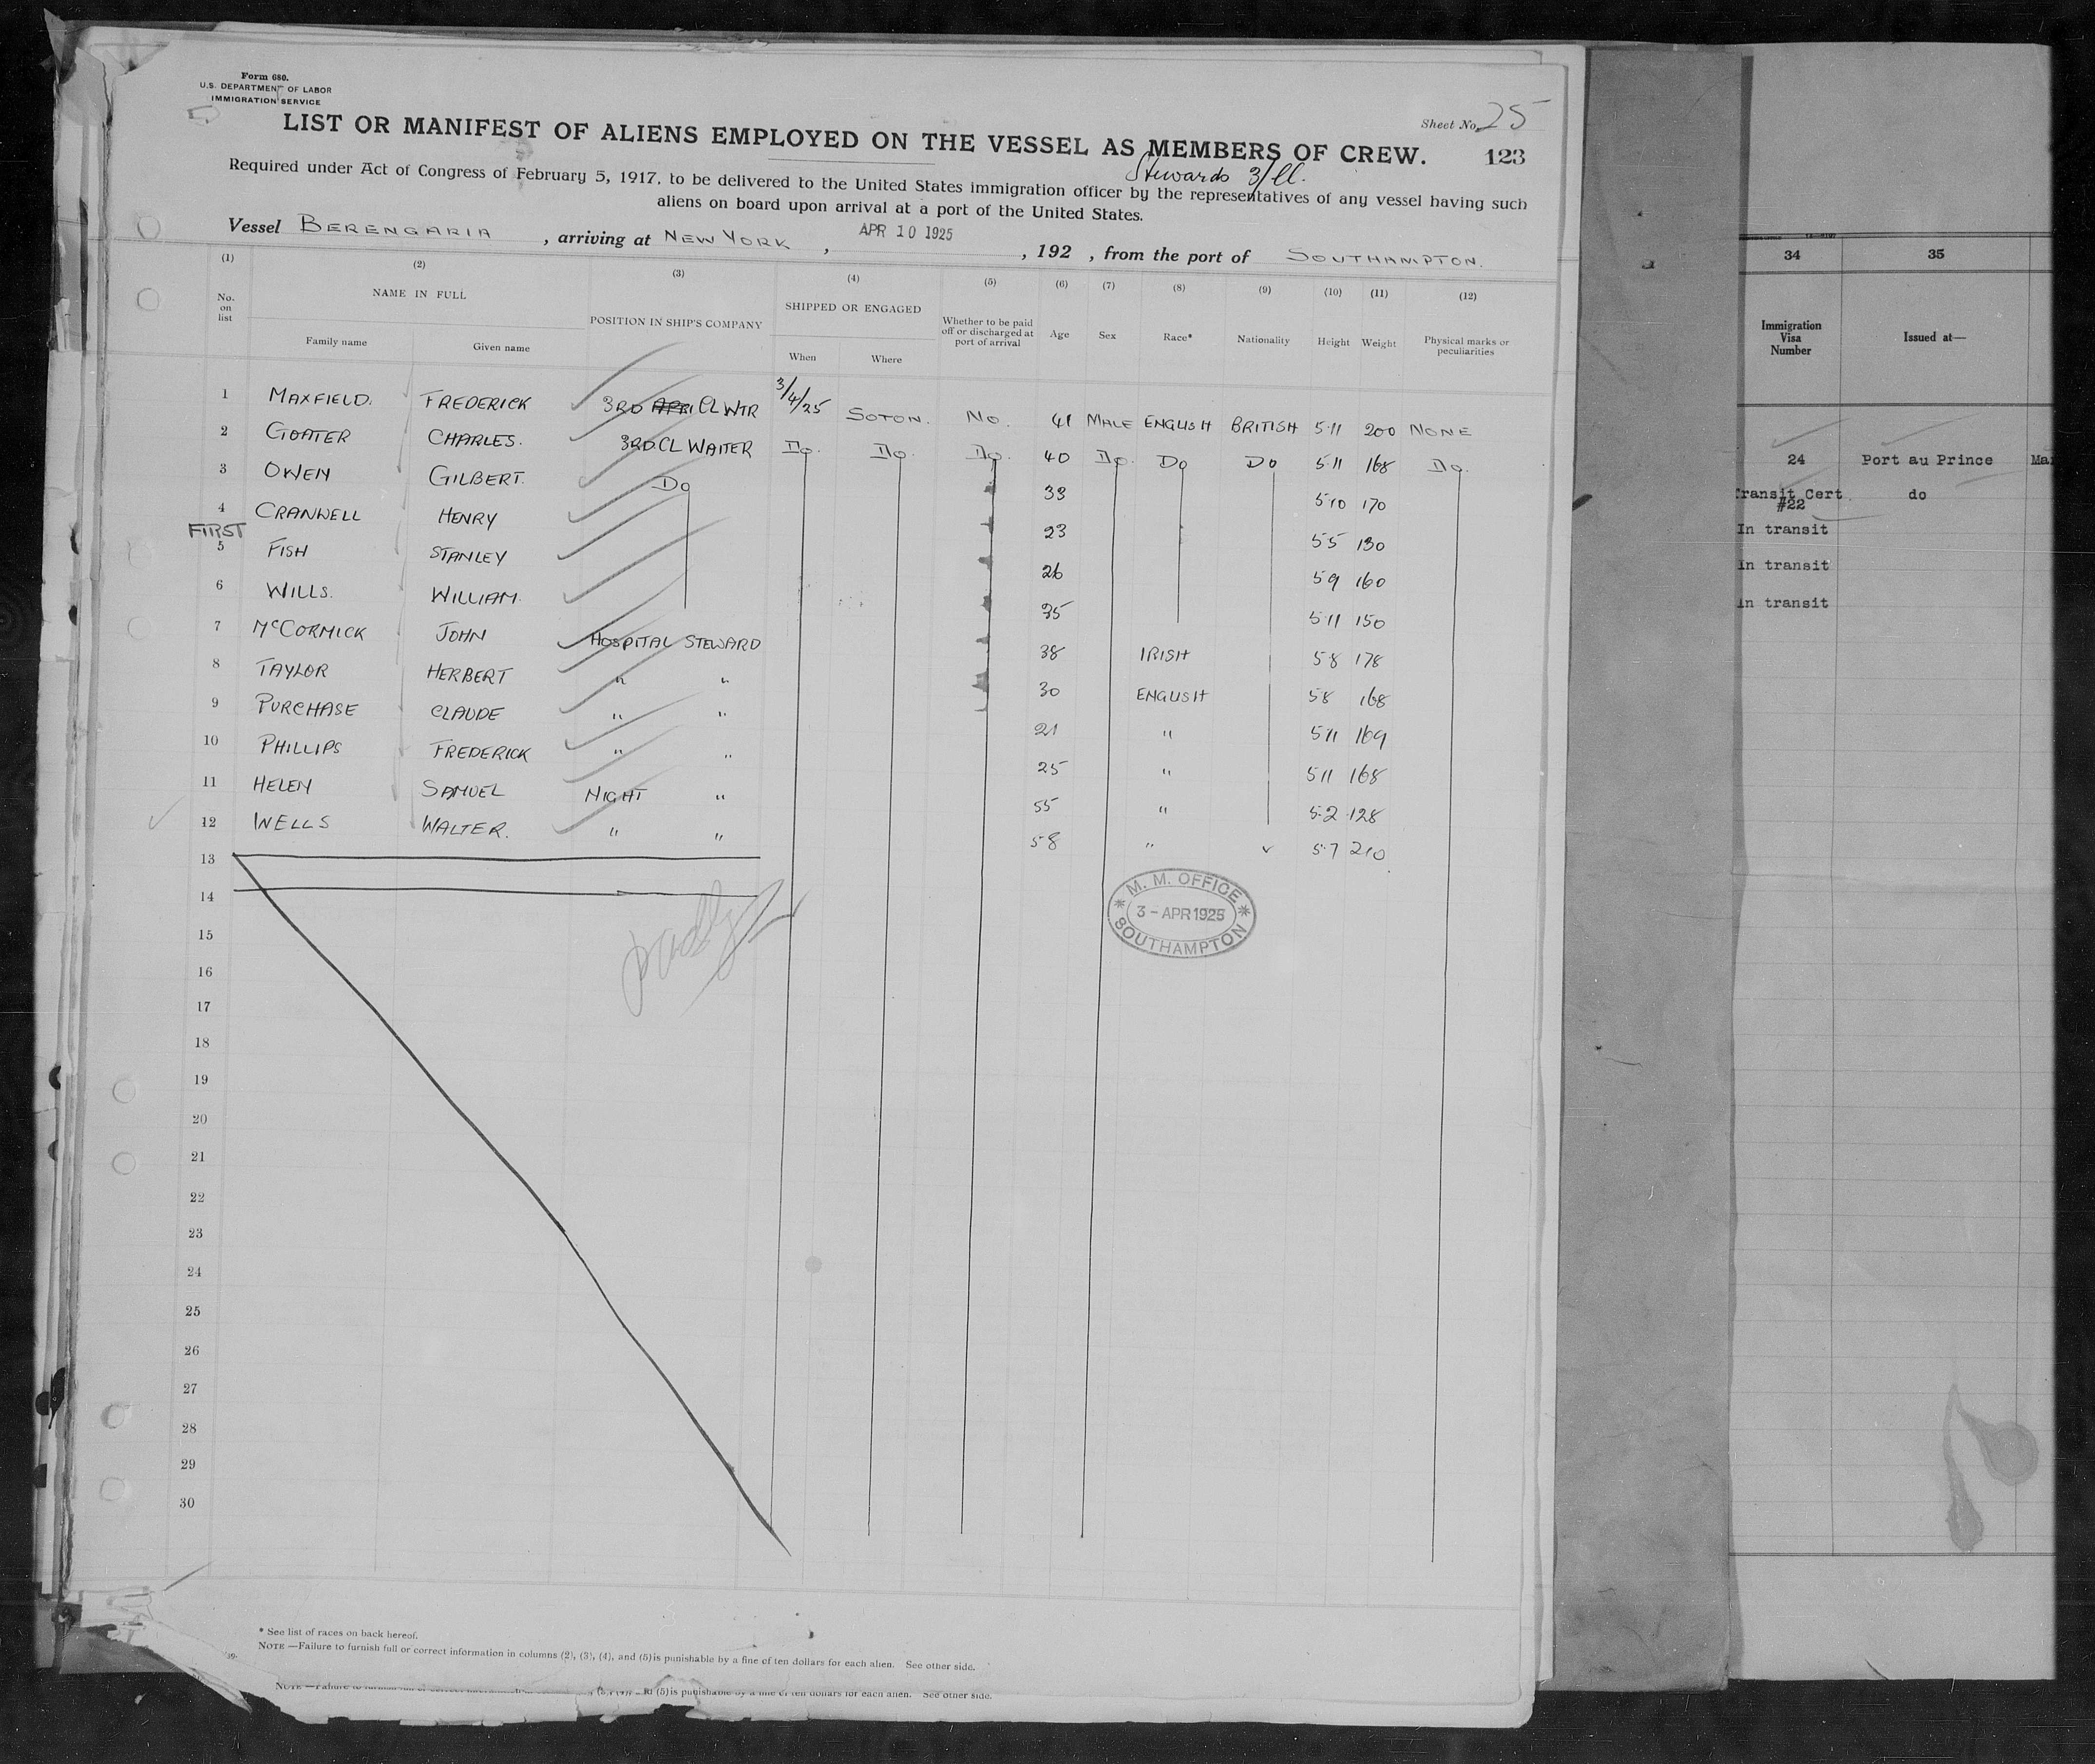 Form 680.
U.S. DEPARTMENT OF LABOR
IMMIGRATION SERVICE
Sheet No. 25
LIST OR MANIFEST OF ALIENS EMPLOYED ON THE VESSEL AS MEMBERS OF CREW. 123
Stewards 3/Cl.
Required under Act of Congress of February 5, 1917, to be delivered to the United States immigration officer by the representatives of any vessel having such
aliens on board upon arrival at a port of the United States.
Vessel BERENGARIA, arriving at NEW YORK, APR 10 1925, 192 , from the port of SOUTHAMPTON.
(1) (2) (3) (4) (5) (6) (7) (8) (9) (10) (11) (12)
No. on list NAME IN FULL POSITION IN SHIP'S COMPANY SHIPPED OR ENGAGED Whether to be paid off or discharged at port of arrival Age Sex Race* Nationality Height Weight Physical marks or peculiarities
Family name Given name When Where
1 MAXFIELD. FREDERICK 3RD CL WTR 3/4/25 SOTON. NO. 41 MALE ENGLISH BRITISH 5·11 200 NONE
2 GOATER CHARLES. 3RD.CL WAITER Do. Do. Do. 40 Do. Do Do 5·11 168 Do.
3 OWEN GILBERT. Do 33 5·10 170
4 CRANWELL HENRY 23 5·5 130
FIRST
5 FISH STANLEY 26 5·9 160
6 WILLS. WILLIAM. 35 5·11 150
7 McCORMICK JOHN HOSPITAL STEWARD 38 IRISH 5·8 178
8 TAYLOR HERBERT " " 30 ENGLISH 5·8 168
9 PURCHASE CLAUDE " " 21 " 5·11 169
10 PHILLIPS FREDERICK " " 25 " 5·11 168
11 HELEN SAMUEL NIGHT " 55 " 5·2 128
12 WELLS WALTER. " " 58 " 5·7 210
13
14
15
16
17
18
19
20
21
22
23
24
25
26
27
28
29
30
M. M. OFFICE
3 - APR 1925
SOUTHAMPTON
* See list of races on back hereof.
NOTE —Failure to furnish full or correct information in columns (2), (3), (4), and (5) is punishable by a fine of ten dollars for each alien. See other side.
(5) is punishable by a fine of ten dollars for each alien. See other side.
34 35
Immigration Visa Number Issued at—
24 Port au Prince
Transit Cert. #22 do
In transit
In transit
In transit